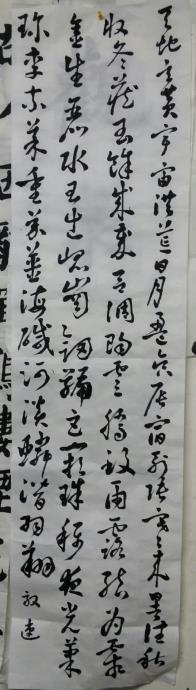 天地玄黄宇宙洪荒日月盈昃辰宿列张寒来暑往秋
收冬藏闰馀成岁吕调阳云腾致雨露结为霜
金生丽水玉出崐崗剑号巨阙珠称夜光果
珍李柰菜重芥薑海鹹河淡鳞潜羽翔